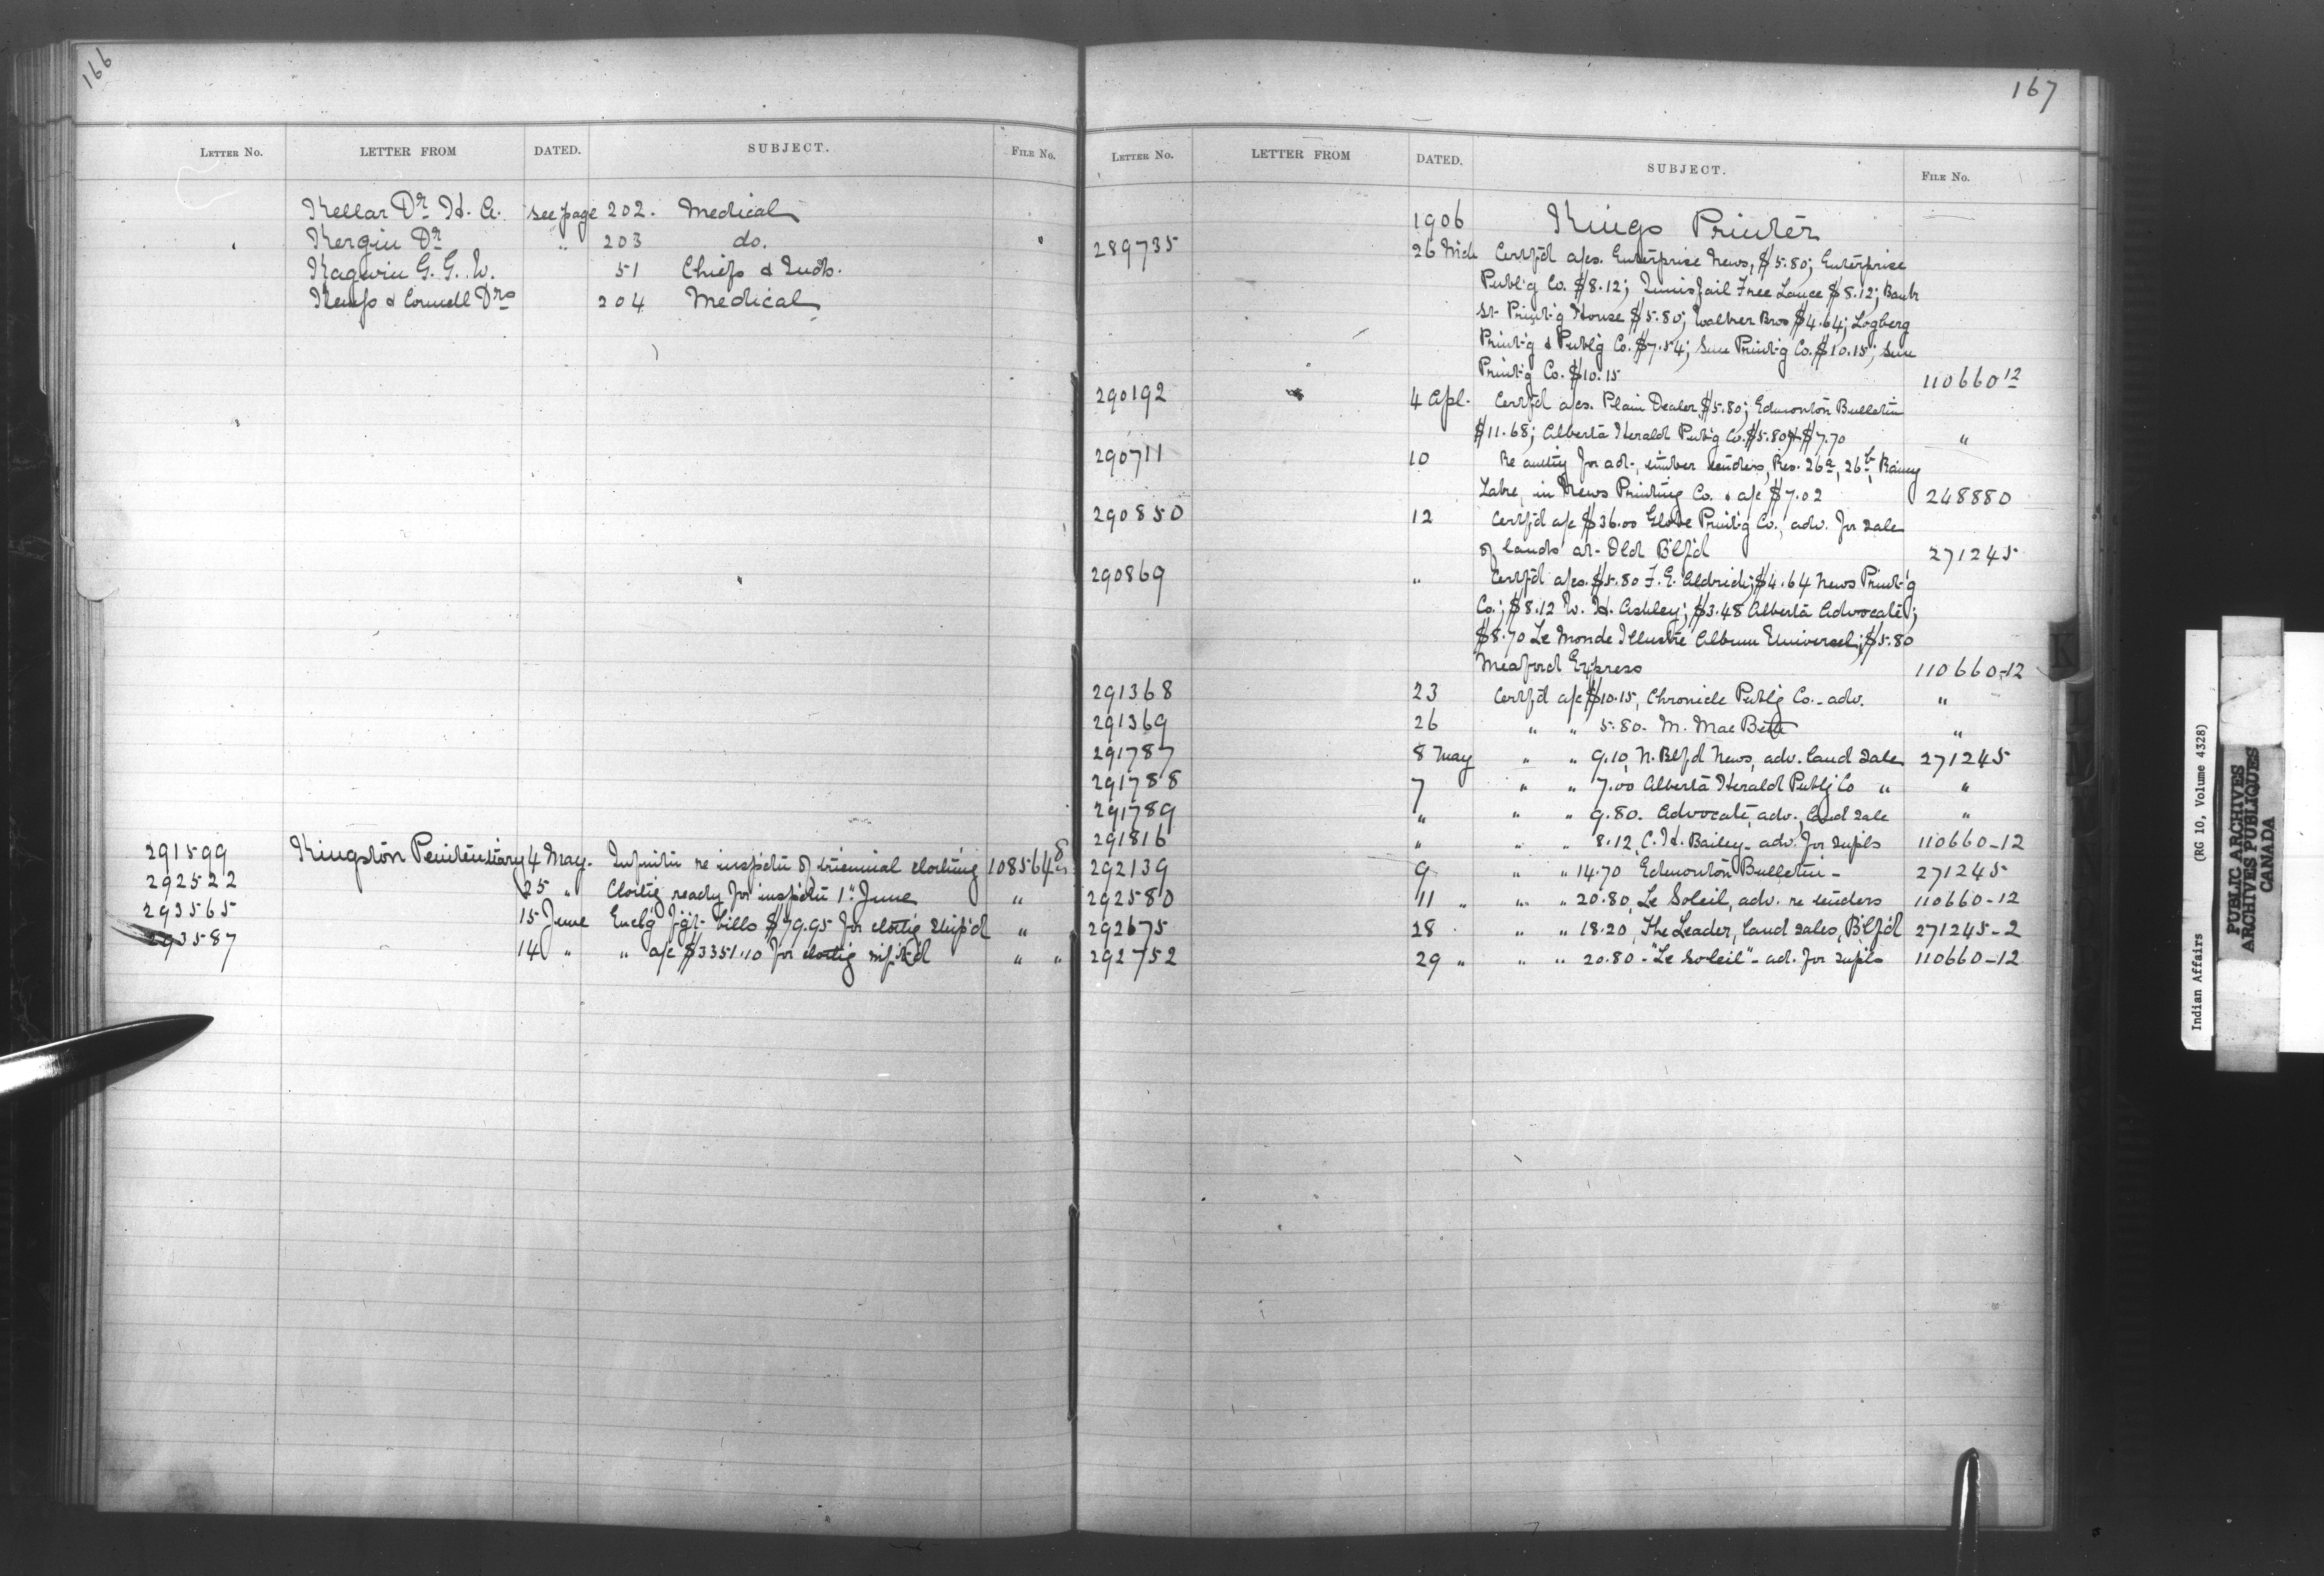 166
LETTER NO. LETTER FROM DATED. SUBJECT. FILE NO.
Kellar Dr. H. A. see page 202. Medical
Kergin Dr. " 203 do.
Kagwin G. G. W. 51 Chiefs & Inds.
Kemp & Connell Drs 204 Medical
291599 Kingston Penitentiary 4 May. re inspctn of triennial clothing 108564
292522 25 " Clothg ready for inspctn 1" June "
293565 15 June Enclg fgt- bills $79.95 for clothg ship'd "
293587 14 " " a/c $3351.10 for clothg " "
167
LETTER NO. LETTER FROM DATED. SUBJECT. FILE NO.
1906 Kings Printer
289735 26 Mch Certf'd a/cs. Enterprise News, $5.80; Enterprise
Publ'g Co. $8.12; Innisfail Free Lance $8.12; Bank
St- Print'g House $5.80; Walker Bros $4.64; Logberg
Print'g & Publ'g Co. $7.54; Sun Print'g Co. $10.15; Sun
Print'g Co. $10.15 110660 12
290192 4 Apl. Certf'd a/cs. Plain Dealer $5.80; Edmonton Bulletin
$11.68; Alberta Herald Pub'g Co. $5.80 & $7.70 "
290711 10 Re authy for adt-, timber tenders, Res. 26a, 26b, Rainy
Lake, in News Printing Co. & a/c $7.02 248880
290850 12 Certf'd a/c $36.00 Globe Print'g Co., adv. for sale
of lands at- Old Blf'd 271245
290869 " Certf'd a/cs. $5.80 F. E. Aldrich; $4.64 News Print'g
Co.; $8.12 W. H. Ashley; $3.48 Alberta Advocate;
$8.70 Le Monde Illustré Album Universel; $5.80
Meaford Express 110660-12
291368 23 Certf'd a/c $10.15, Chronicle Publg Co. - adv. "
291369 26 " " 5.80. M. MacBeth "
291787 8 May " " 9.10, N. Blfd News, adv. land sale 271245
291788 7 " " 7.00 Alberta Herald Publg Co " "
291789 " " " 9.80. Advocate, adv., land sale "
291816 " " " 8.12, C. H. Bailey - adv. for supls 110660-12
292139 9 " " 14.70 Edmonton Bulletin - 271245
292580 11 " " " 20.80, Le Soleil, adv. re tenders 110660-12
292675 28 " " 18.20, The Leader, land sales, Blf'd 271245-2
292752 29 " " " 20.80 - "Le Soleil" - ad. for supls 110660-12
K
L
M
Indian Affairs (RG 10, Volume 4328)
PUBLIC ARCHIVES
ARCHIVES PUBLIQUES
CANADA